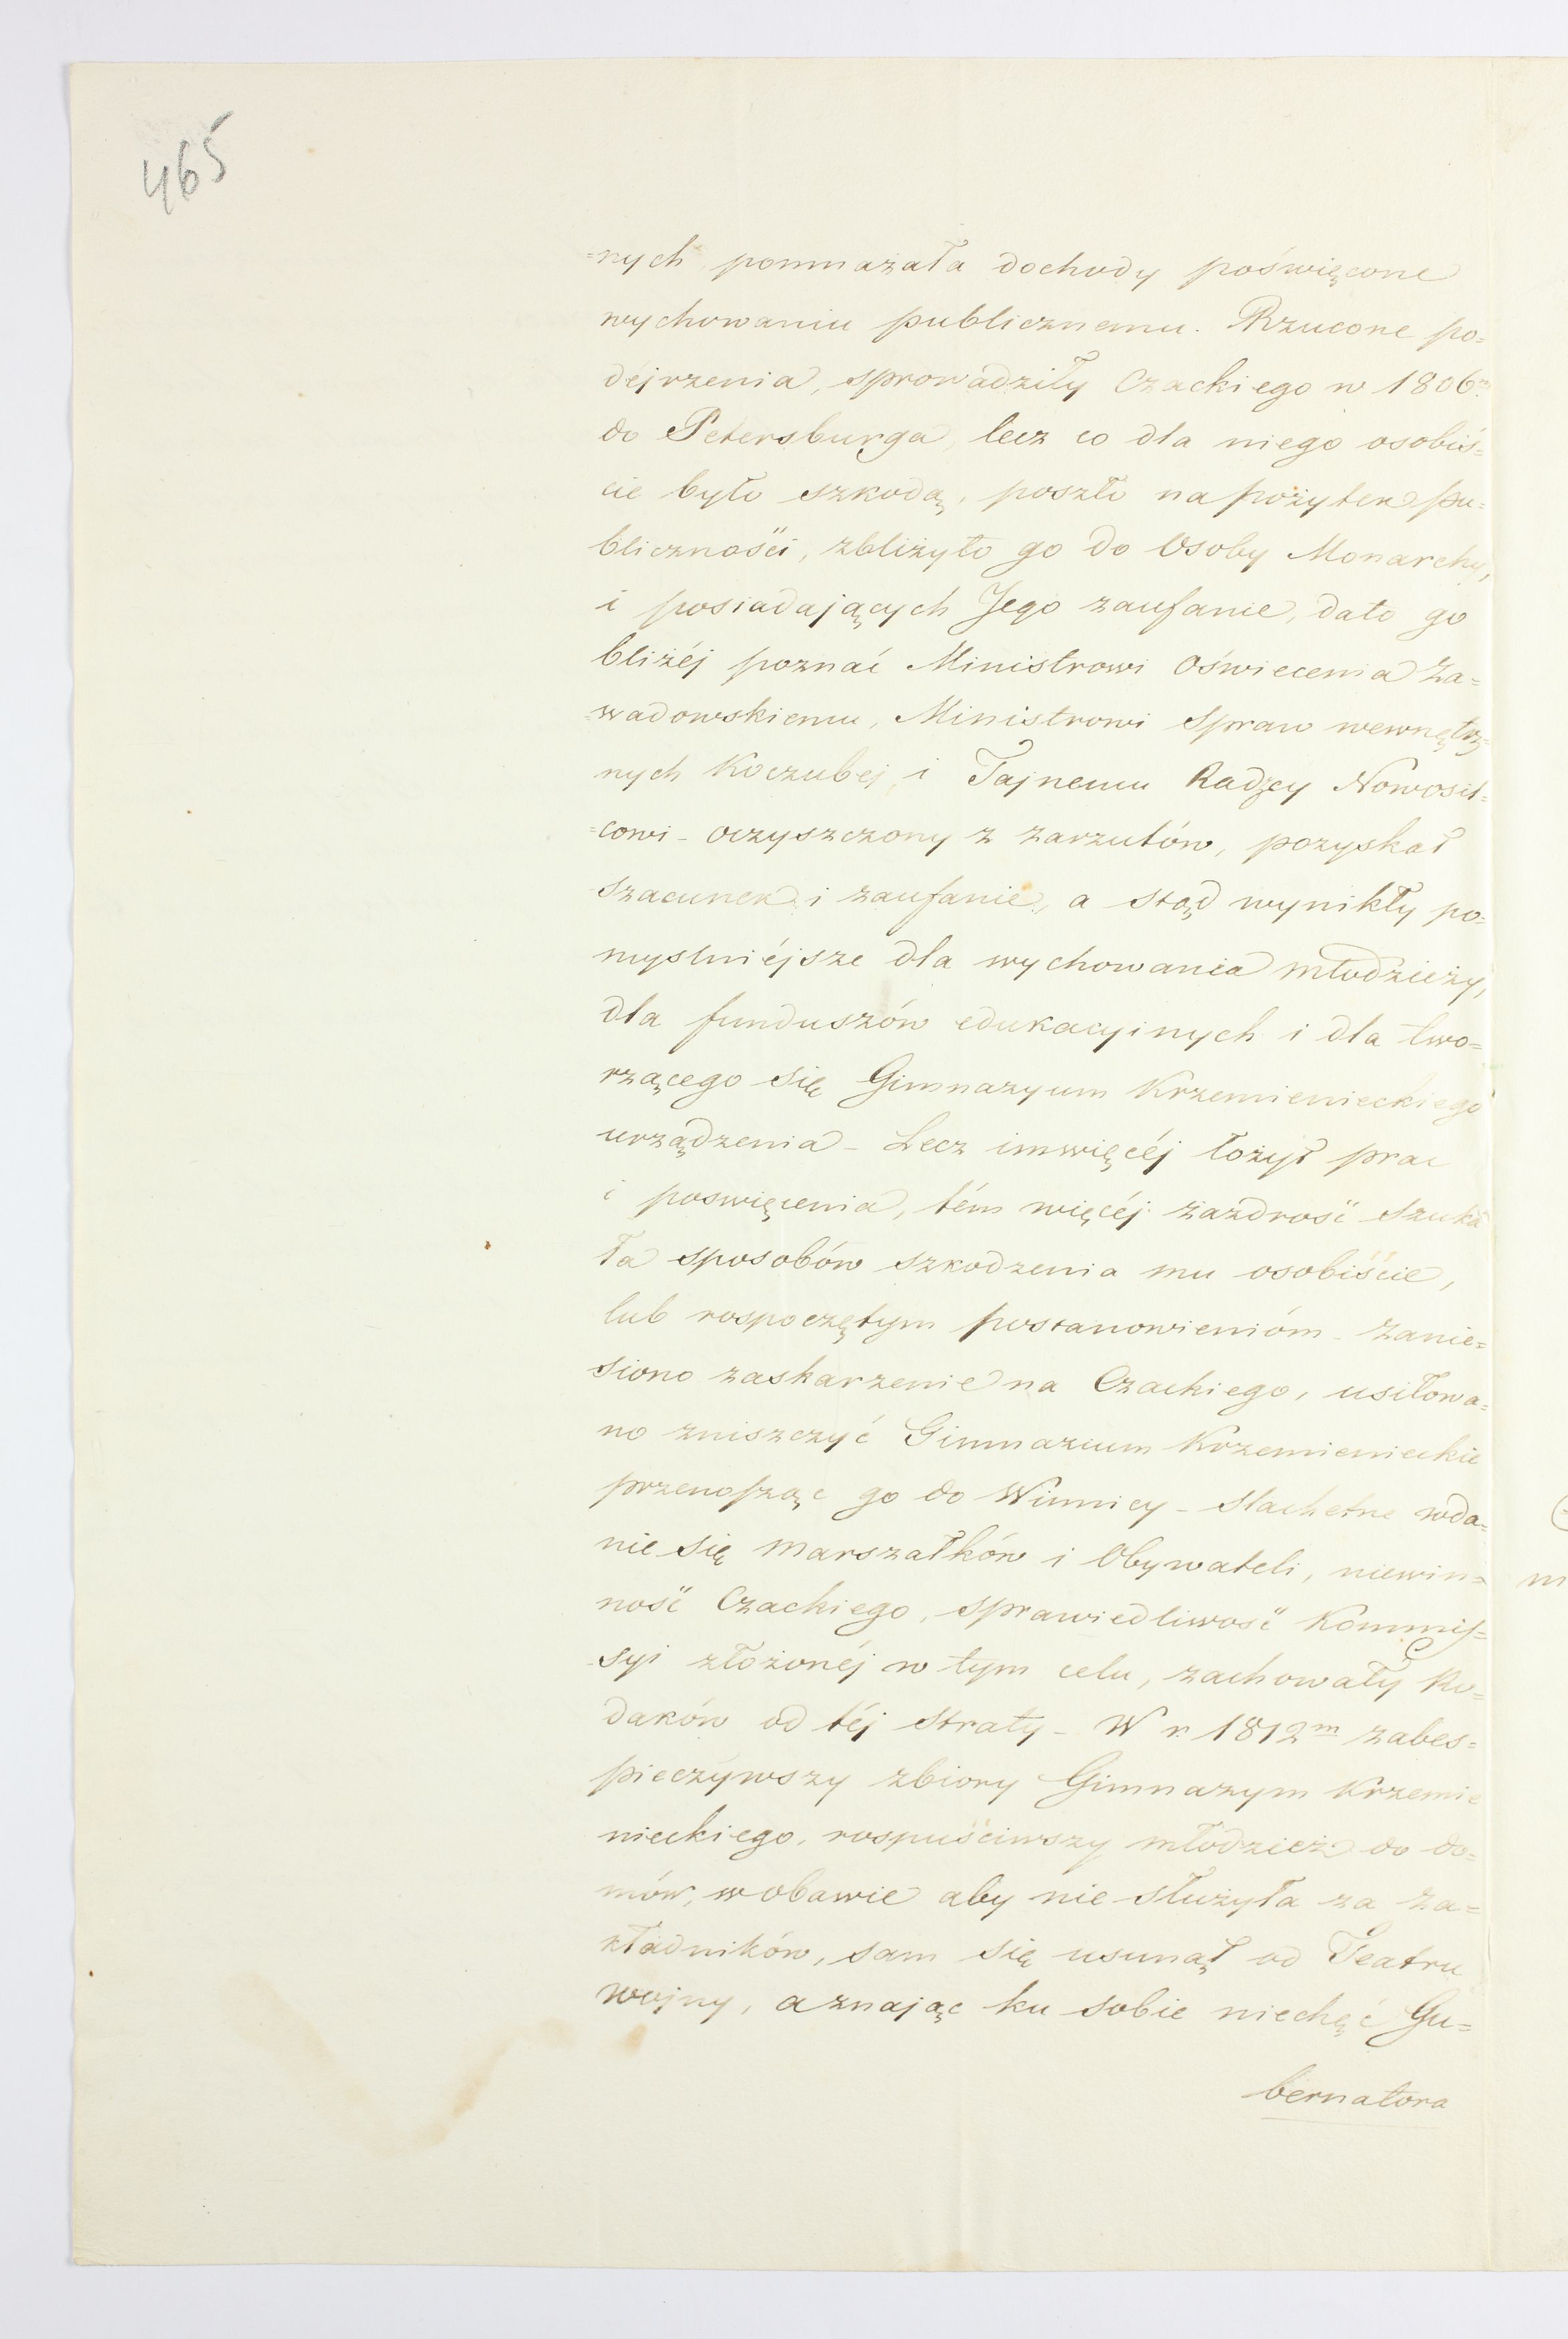 465
=nych pomnażała dochody poświęcone
wychowaniu publicznemu. Rzucone po=
dejrzenia, sprowadziły Czackiego w 1806m
do Petersburga, lecz co dla niego osobiś=
cie było szkodą, poszło na pożytek pu=
bliczności, zbliżyło go do Osoby Monarchy,
i posiadających Jego zaufanie, dało go
bliżéj poznać Ministrowi Oświecenia Za=
=wadowskiemu, Ministrowi Spraw wewnętrz=
nych Koczubej, i Tajnemu Radzcy Nowosil=
=cowi - oczyszczony z zarzutów, pozyskał
szacunek i zaufanie, a stąd wynikły po=
myslniéjsze dla wychowania młodzieży,
dla funduszów edukacyinych i dla two=
rzącego się Gimnazyum Krzemienieckiego
urządzenia - Lecz imwięcéj łożył prac
i poswięcenia, tém więcéj zazdrość szuka
ła sposobów szkodzenia mu osobiście,
lub rospoczętym postanowienióm - Zanie=
siono zaskarzenie na Czackiego, usiłowa=
no zniszczyć Gimnazium Krzemienieckie
przenosząc go do Winnicy - Slachetne wda=
nie się Marszałków i Obywateli, niewin=
ność Czackiego, sprawiedliwość Kommis=
syi złożonéj w tym celu, zachowały Ro=
daków od téj straty - W r. 1812m zabes=
pieczywszy zbiory Gimnazym Krzemie
nieckiego, rospuściwszy młodzież do do=
mów, w obawie aby nie służyła za za=
kładników, sam się usunął od Teatru
wojny, a znając ku sobie niechęć Gu=
bernatora